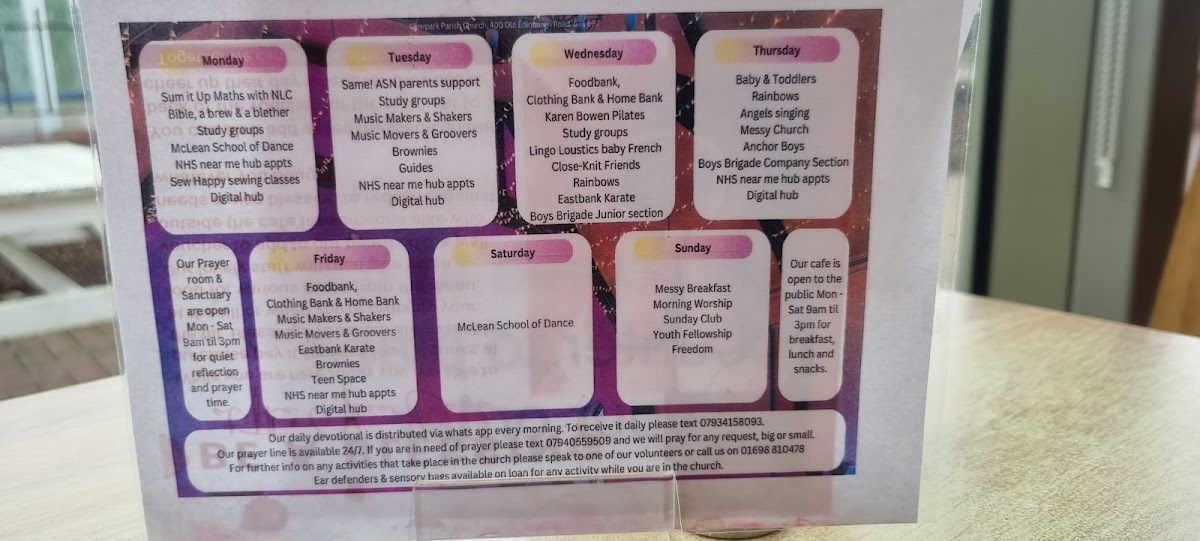 Viewpark Parish Church, 400 Old Edinburgh Road,
Monday
Sum it Up Maths with NLC
Bible, a brew & a blether
Study groups
McLean School of Dance
NHS near me hub appts
Sew Happy sewing classes
Digital hub
Tuesday
Same! ASN parents support
Study groups
Music Makers & Shakers
Music Movers & Groovers
Brownies
Guides
NHS near me hub appts
Digital hub
Wednesday
Foodbank,
Clothing Bank & Home Bank
Karen Bowen Pilates
Study groups
Lingo Loustics baby French
Close-Knit Friends
Rainbows
Eastbank Karate
Boys Brigade Junior section
Thursday
Baby & Toddlers
Rainbows
Angels singing
Messy Church
Anchor Boys
Boys Brigade Company Section
NHS near me hub appts
Digital hub
Our Prayer
room &
Sanctuary
are open
Mon - Sat
9am til 3pm
for quiet
reflection
and prayer
time.
Friday
Foodbank,
Clothing Bank & Home Bank
Music Makers & Shakers
Music Movers & Groovers
Eastbank Karate
Brownies
Teen Space
NHS near me hub appts
Digital hub
Saturday
McLean School of Dance
Sunday
Messy Breakfast
Morning Worship
Sunday Club
Youth Fellowship
Freedom
Our cafe is
open to the
public Mon -
Sat 9am til
3pm for
breakfast,
lunch and
snacks.
Our daily devotional is distributed via whats app every morning. To receive it daily please text 07934158093.
Our prayer line is available 24/7. If you are in need of prayer please text 07940559509 and we will pray for any request, big or small.
For further info on any activities that take place in the church please speak to one of our volunteers or call us on 01698 810478
Ear defenders & sensory bags available on loan for any activity while you are in the church.